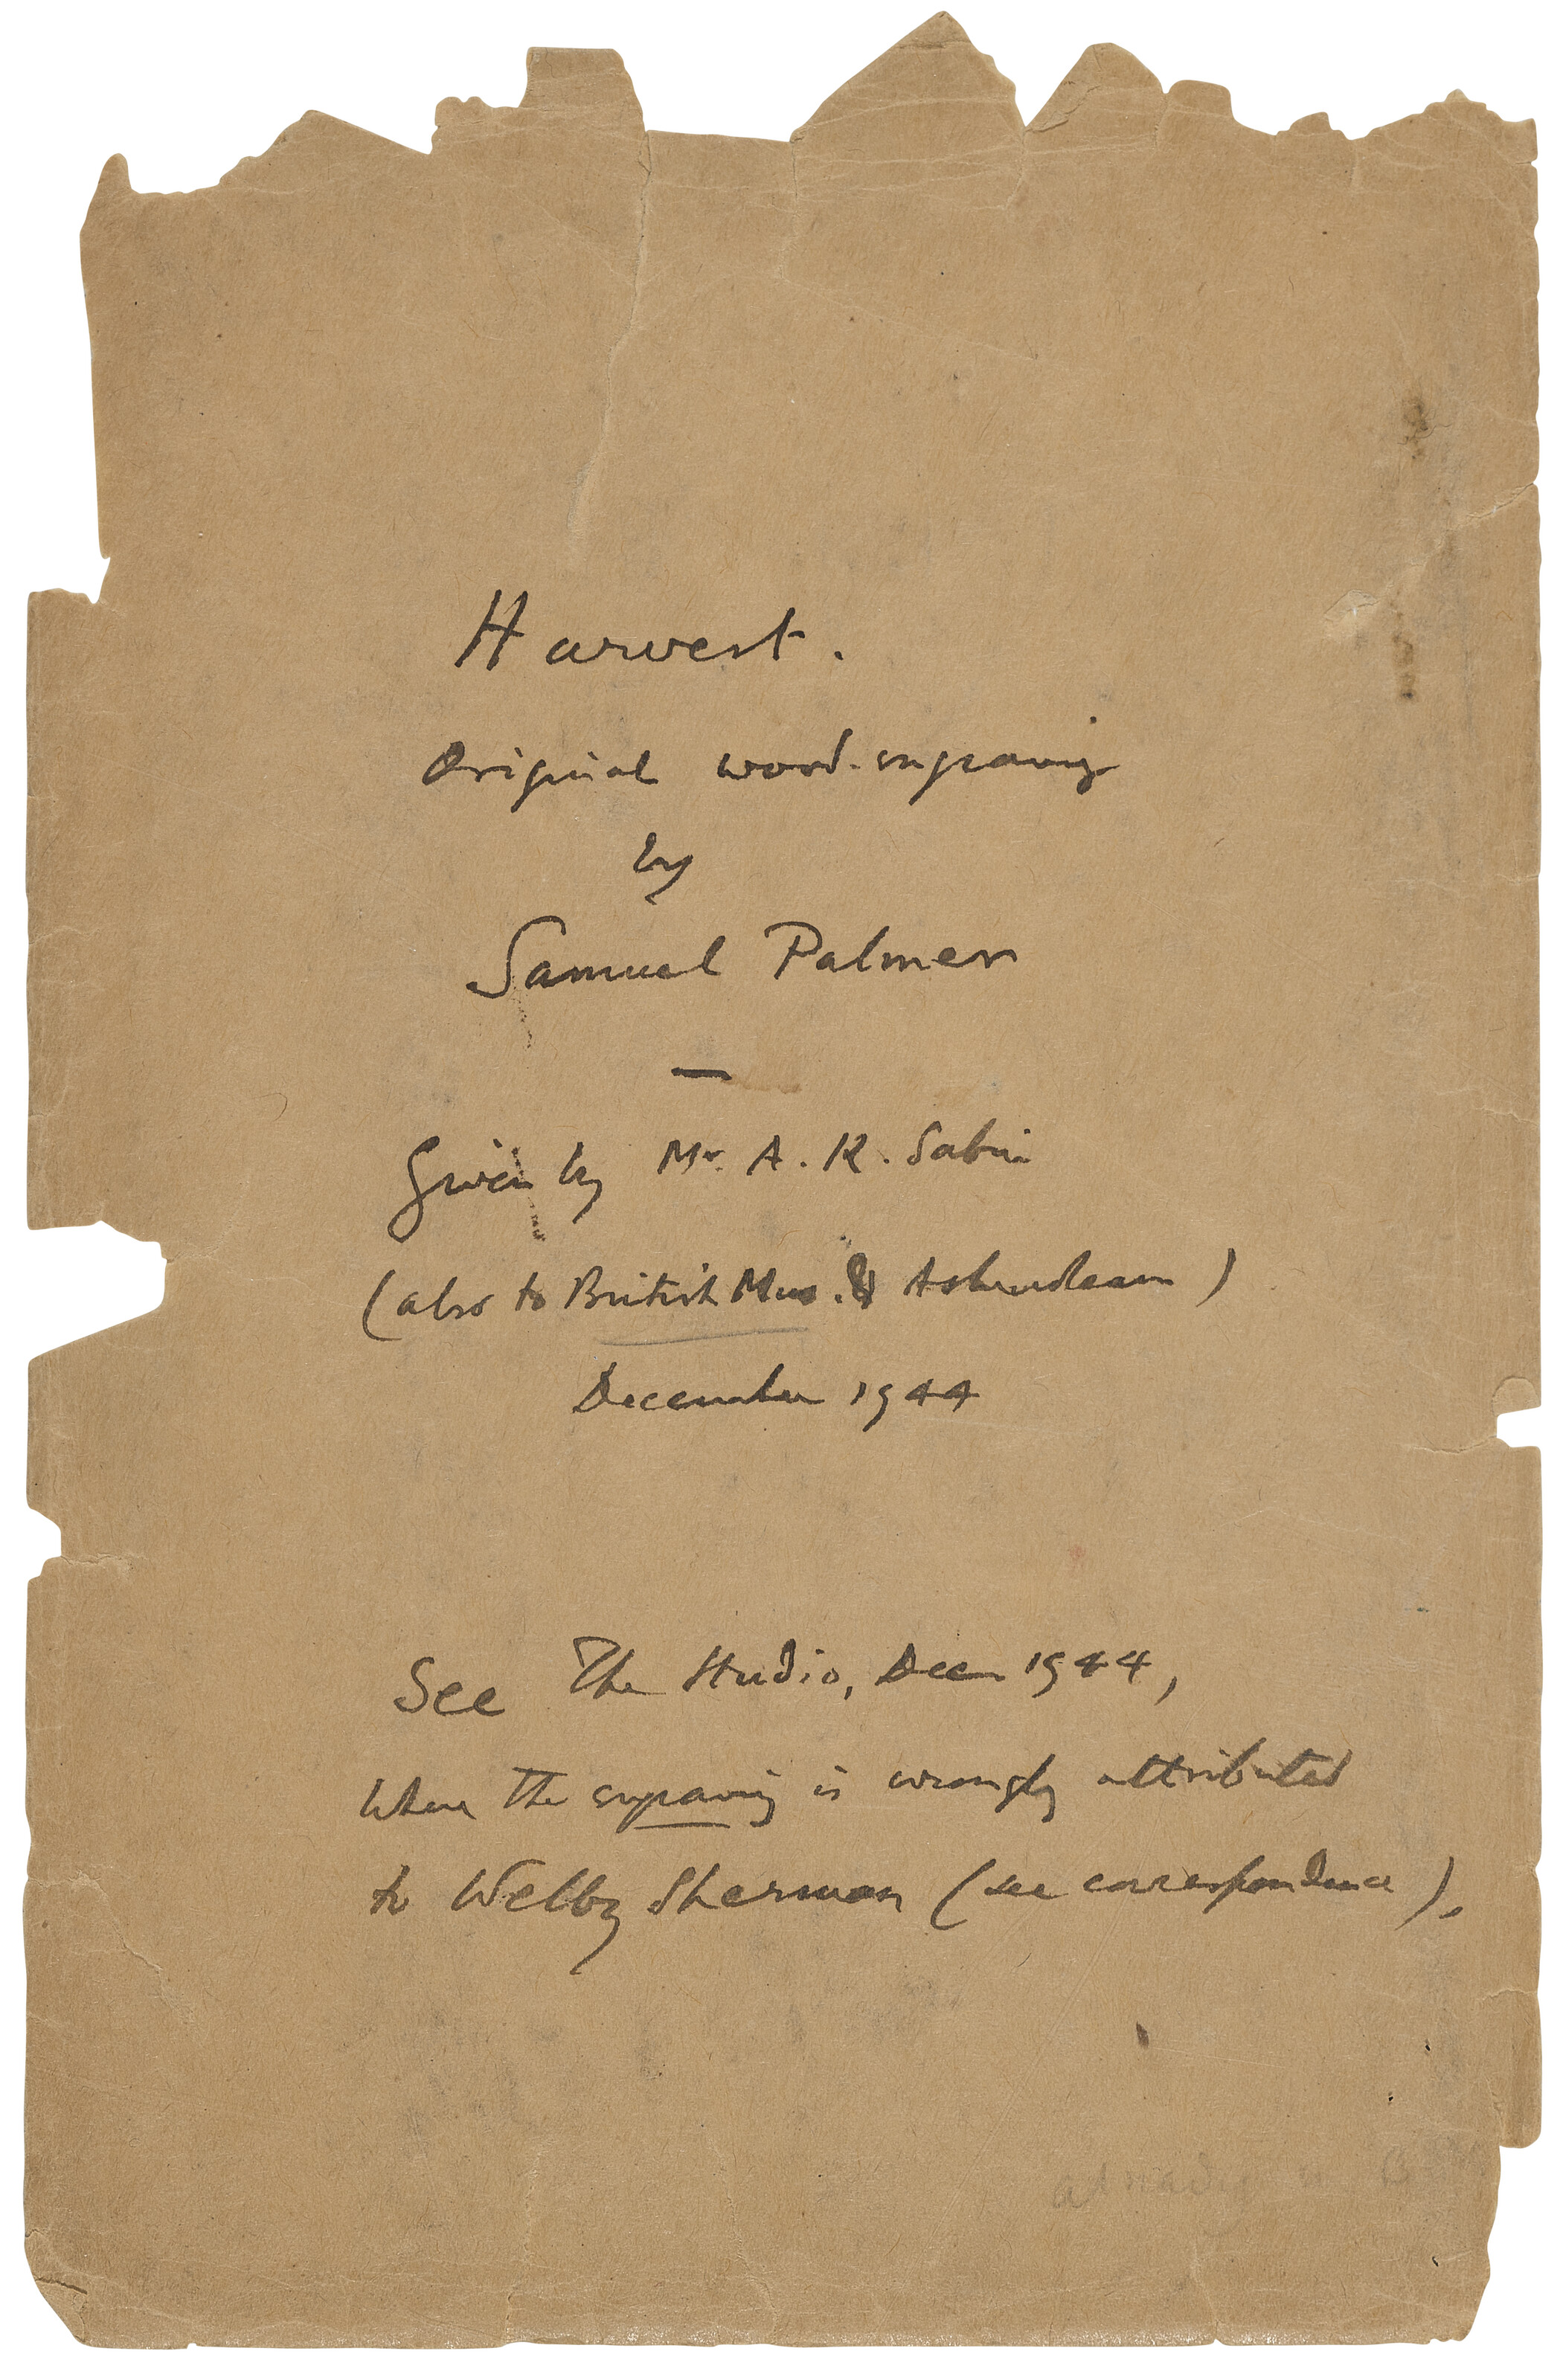 Harvest.
Original wood-engraving
by
Samuel Palmer
—
Given by Mr. A. K. Sabin
(also to British Mus. & Ashmolean)
December 1944
See The Studio, Decr 1944,
where the engraving is wrongly attributed
to Welby Sherman (see correspondence).
already in B